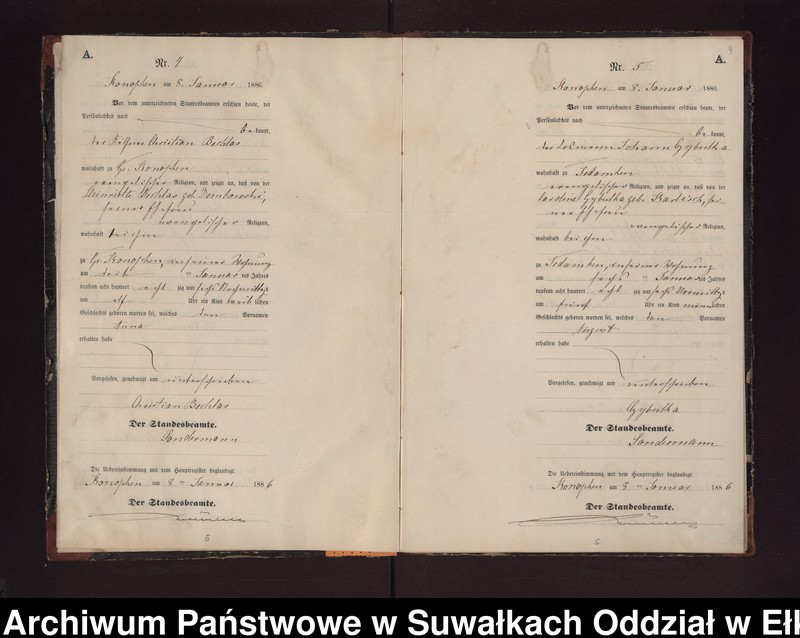 A.
Nr. 4
Konopken am 8. Januar 1886.
Vor dem unterzeichneten Standesbeamten erschien heute, der
Persönlichkeit nach
be kannt,
der Christian Bechlas
wohnhaft zu Gr. Konopken
evangelischer Religion, und zeigte an, daß von der
Henriette Bechlas geb. Domborowski,
seiner Ehefrau
evangelischer Religion,
wohnhaft bei ihm
zu Gr. Konopken, in seiner Wohnung
am Januar des Jahres
tausend acht hundert acht zig und sechs Vormittags
um elf Uhr ein Kind weib lichen
Geschlechts geboren worden sei, welches den Vornamen
Anna
erhalten habe
Vorgelesen, genehmigt und unterschrieben
Christian Bechlas
Der Standesbeamte.
Sandermann
Die Uebereinstimmung mit dem Hauptregister beglaubigt.
Konopken am 8. Januar 1886
Der Standesbeamte.
5
9
A.
Nr. 5
Konopken am 8. Januar 1886.
Vor dem unterzeichneten Standesbeamten erschien heute, der
Persönlichkeit nach
be kannt,
Johann Gybulka
wohnhaft zu Sdamken
evangelischer Religion, und zeigte an, daß von der
Gybulka geb. sei
ner Ehefrau
evangelischer Religion,
wohnhaft bei ihm
zu Sdamken, in seiner Wohnung
am sechs Januar des Jahres
tausend acht hundert acht zig und sechs Vormittags
um fünf Uhr ein Kind männlichen
Geschlechts geboren worden sei, welches den Vornamen
August
erhalten habe
Vorgelesen, genehmigt und unterschrieben
Gybulka
Der Standesbeamte.
Sandermann
Die Uebereinstimmung mit dem Hauptregister beglaubigt.
Konopken am 8. Januar 1886
Der Standesbeamte.
6
Archiwum Państwowe w Suwałkach Oddział w Eł